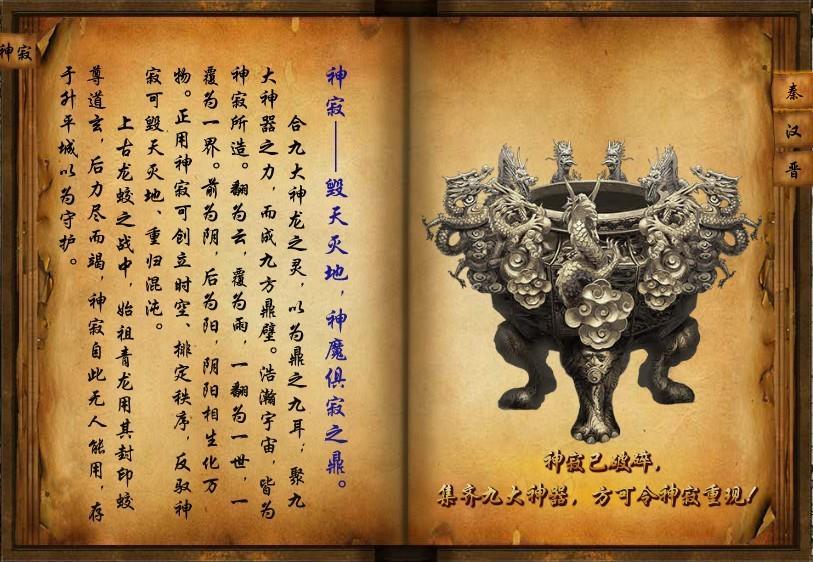 神寂
神寂——毁天灭地，神魔俱寂之鼎。
合九大神龙之灵，以为鼎之九耳；聚九
大神器之力，而成九方鼎壁。浩瀚宇宙，皆为
神寂所造。翻为云，覆为雨，一翻为一世，一
覆为一界。前为阴，后为阳，阴阳相生化万
物。正用神寂可创立时空、排定秩序，反驭神
寂可毁天灭地、重归混沌。
上古龙蛟之战中，始祖青龙用其封印蛟
尊道玄，后力尽而竭，神寂自此无人能用，存
于升平城以为守护。
神寂已破碎，
集齐九大神器，方可令神寂重现！
秦
汉
晋